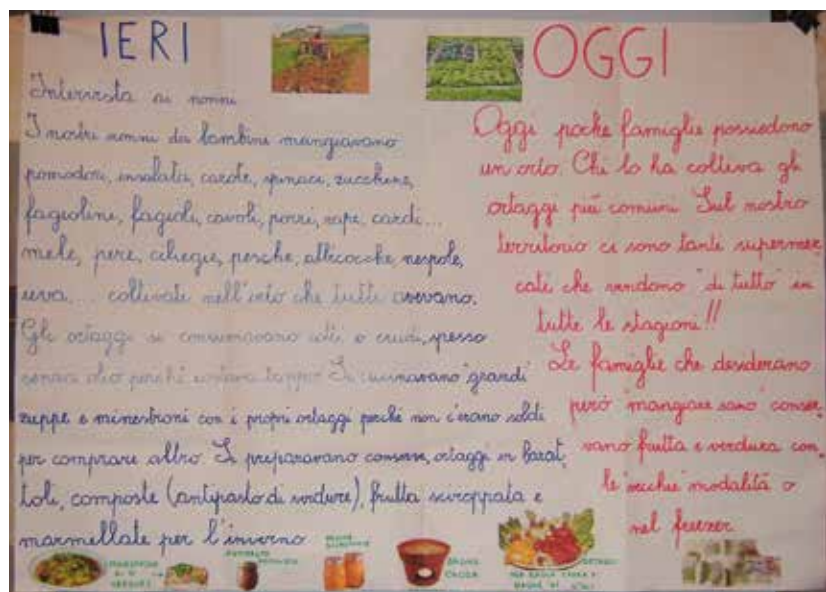 IERI
Intervista ai nonni
I nostri nonni da bambini mangiavano
pomodori, insalata, carote, spinaci, zucchine,
fagiolini, fagioli, cavoli, porri, rape, cardi...
mele, pere, ciliegie, pesche, albicocche, nespole,
uva,... coltivate nell'orto che tutti avevano.
Gli ortaggi si consumavano cotti o crudi, spesso
senza olio perché costava troppo. Si cucinavano "grandi"
zuppe e minestroni con i propri ortaggi perché non c'erano soldi
per comprare altro. Si preparavano conserve, ortaggi in barat
toli, composte (antipasto di verdure), frutta sciroppata e
marmellate per l'inverno
OGGI
Oggi poche famiglie possiedono
un orto. Chi lo ha coltiva gli
ortaggi più comuni. Sul nostro
territorio ci sono tanti supermer
cati che vendono "di tutto" in
tutte le stagioni!!
Le famiglie che desiderano
però "mangiare sano" conser
vano frutta e verdura con
le "vecchie" modalità o
nel freezer
MINESTRONE
DI
VERDURE
BAGNA
CAODA
ORTAGGI
PER BAGNA CAODA